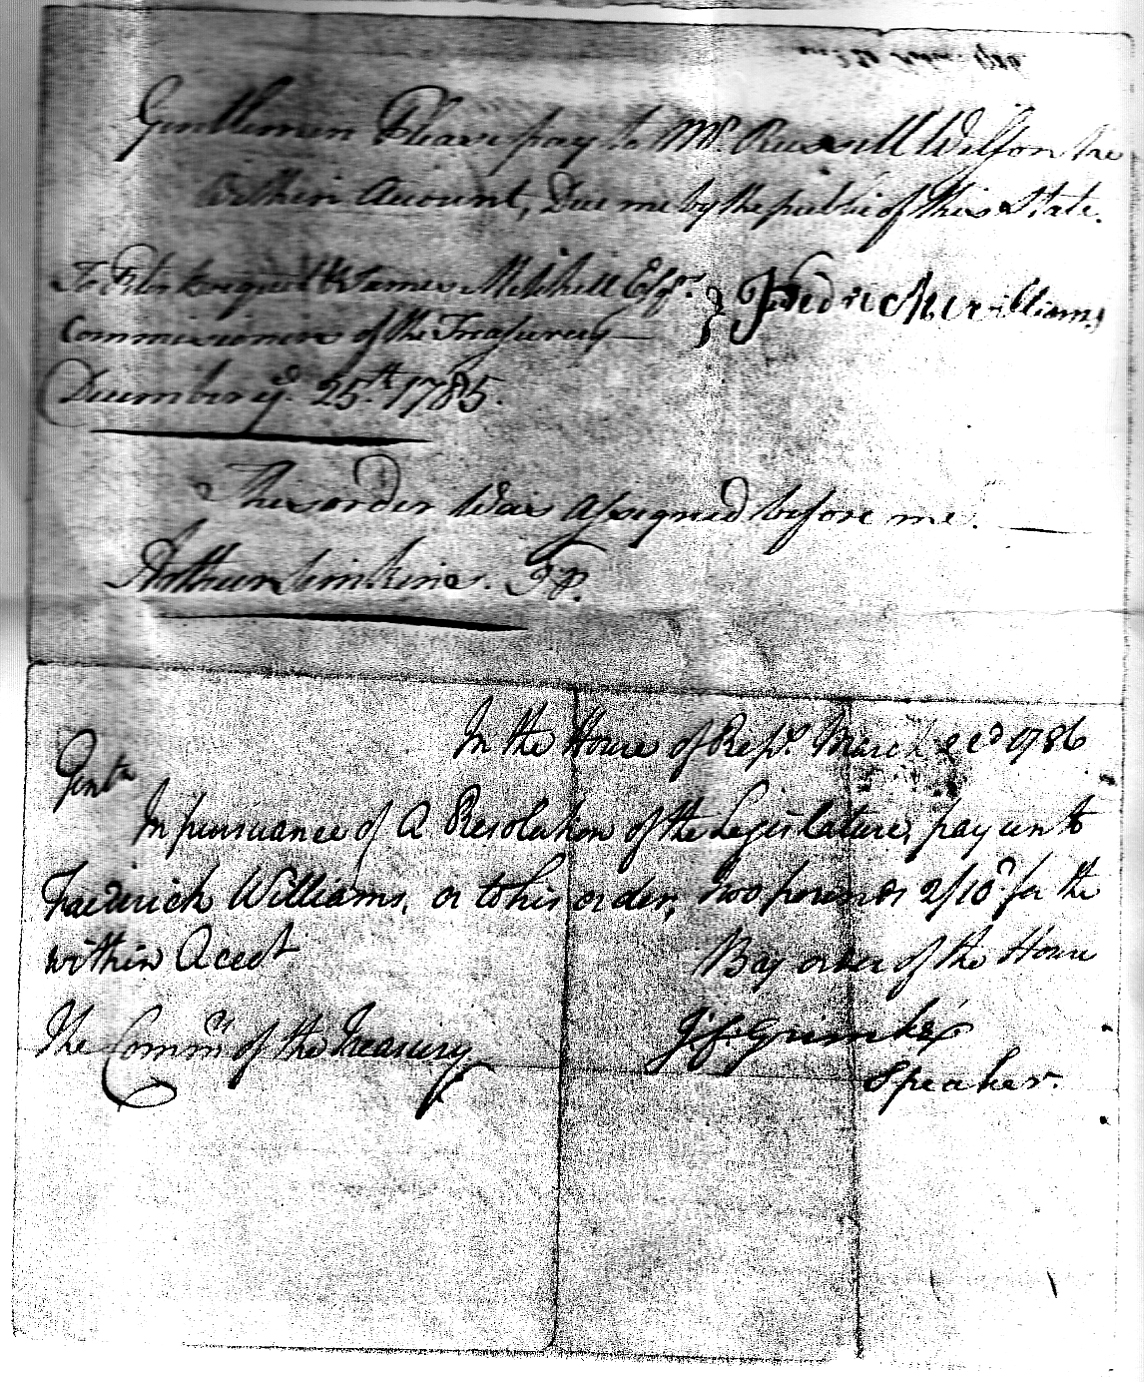 Gentlemen Please pay to Mr. Russell Wilson the
within Account, Due me by the public of this State.
To Peter Bocquet & James Mitchell Esqrs. } Fredrick Williams
Commissioners of the Treasurey —
December ye. 25th. 1785.
This order Was assigned before me. —
Arthur Simkins. J P.
In the House of Reps. March 1786
Gentn
In pursuance of A Resolution of the Legislature, pay unto
Fredrick Williams, or to his order, two pounds 2/10d for the
within Accot
By order of the House
The Commrs of the Treasury
J. F. Grimké
Speaker.